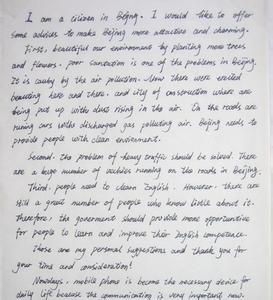 I am a citizen in Bejng. I would like to offer
some advices to make Beijing more attractive and charming.
First, beautiful our environment by planting more trees
and flowers. poor sanitation is one of the problems in Beijing.
It is cauby by the air pollution. Now there were erected
beauting here and there. and city of construction where are
being put up with dust rising in the air. On the roads are
runing cars with discharged gas polluting air. Beijing needs to
provide people with clean enviroment.
Second. the problem of heavy traffic should be solved. There
are a huge number of vechies running on the roads in Beijing.
Third. people need to learn English. However. there are
still a great number of people who know liddle about it.
Therefore, the government should provide more opportunities
for people to learn and improve their English competence.
Those are my personal suggestions and thank you for
your time and consideration!
Nowdays, mobile phone is become the necessary device for
daily life because the communication is very important now.